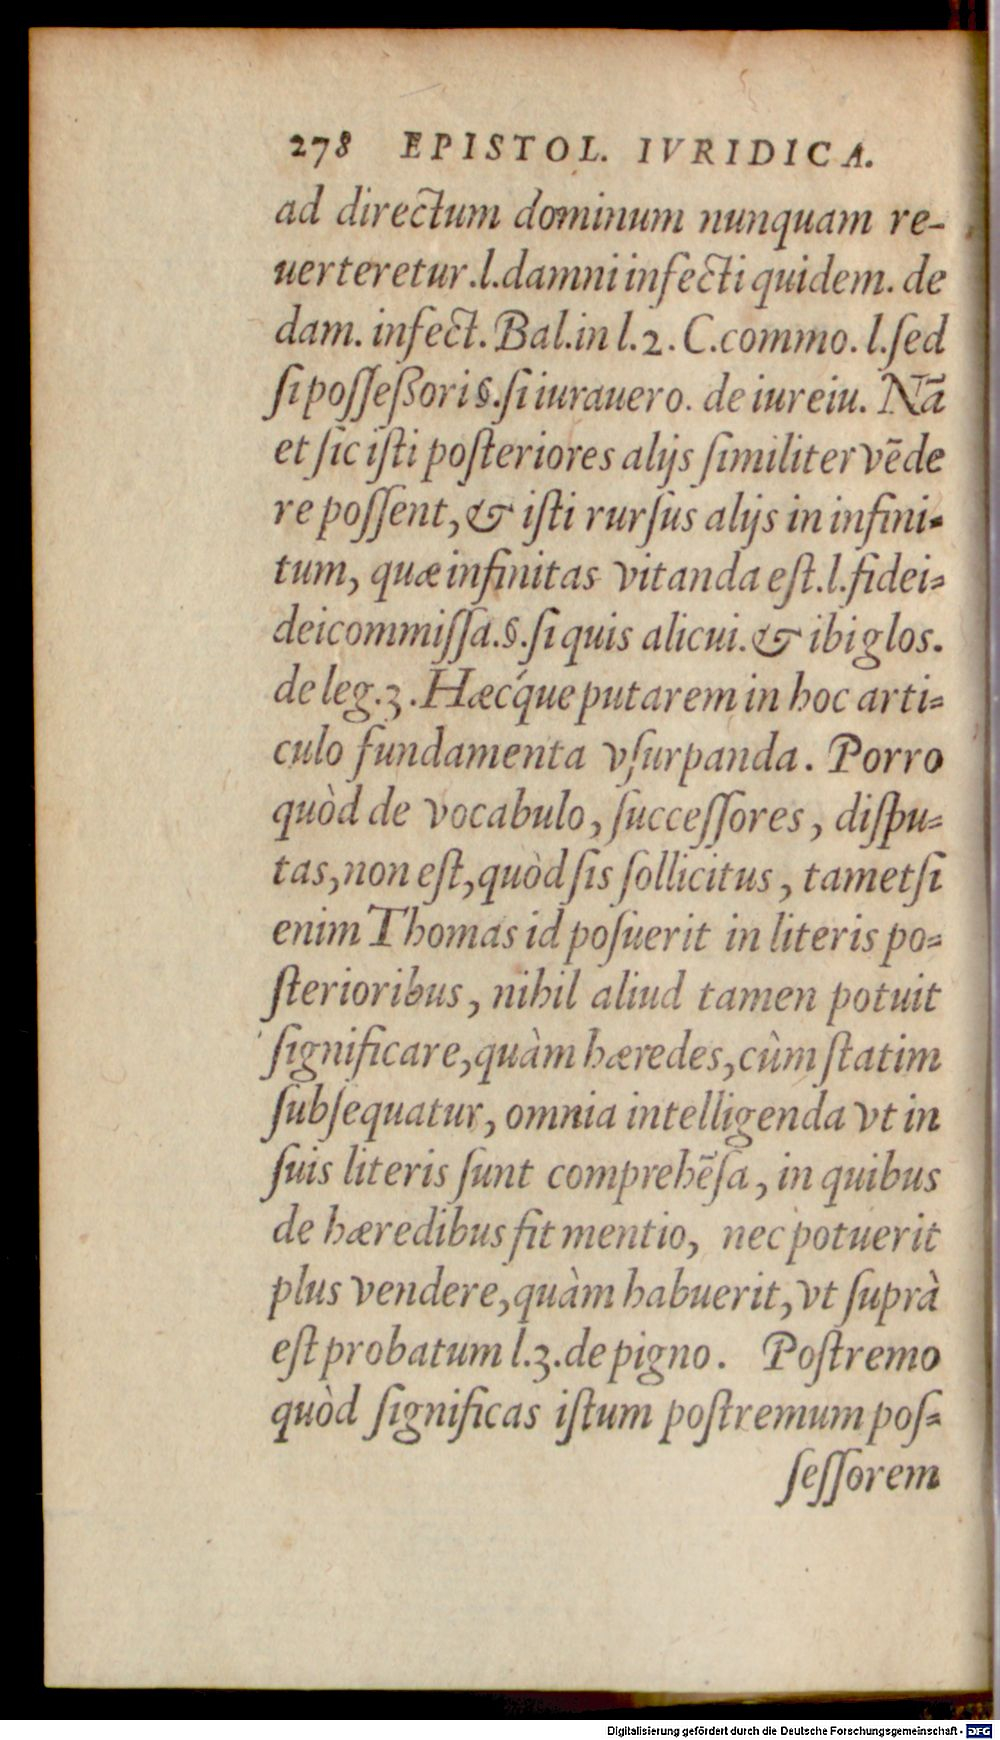 278 EPISTOL. IVRIDICA.
ad directum dominum nunquam re-
uerteretur.l.damni infecti quidem. de
dam. infect. Bal.in l.2. C.commo. l.ſed
ſi poſſeßori §.ſi iurauero. de iureiu. Nā
et ſic iſti poſteriores alijs ſimiliter vēde
re poſſent, & iſti rurſus alijs in infini-
tum, quæ infinitas vitanda eſt.l.fidei-
deicommiſſa.§.ſi quis alicui. & ibi glos.
de leg.3. Hæcq́ue putarem in hoc arti-
culo fundamenta vſurpanda. Porro
quòd de vocabulo, ſucceſſores, diſpu-
tas, non eſt, quòd ſis ſollicitus, tametſi
enim Thomas id poſuerit in literis po-
ſterioribus, nihil aliud tamen potuit
ſignificare, quàm hæredes, cùm ſtatim
ſubſequatur, omnia intelligenda vt in
ſuis literis ſunt comprehēſa, in quibus
de hæredibus fit mentio, nec potuerit
plus vendere, quàm habuerit, vt ſuprà
eſt probatum l.3.de pigno. Poſtremo
quòd ſignificas iſtum poſtremum poſ-
ſeſſorem
Digitalisierung gefördert durch die Deutsche Forschungsgemeinschaft - DFG